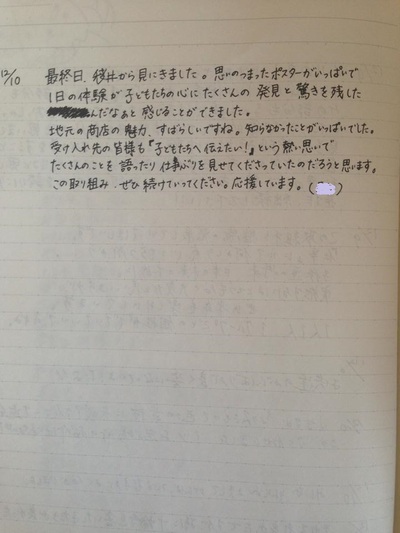 12/10 最終日、桜井から見にきました。思いのつまったポスターがいっぱいで
1日の体験が子どもたちの心にたくさんの発見と驚きを残した
んだなぁと感じることができました。
地元の商店の魅力、すばらしいですね。知らなかったことがいっぱいでした。
受け入れ先の皆様も「子どもたちへ伝えたい!」という熱い思いで
たくさんのことを語ったり仕事ぶりを見せてくださっていたのだろうと思います。
この取り組み、ぜひ続けていってください。応援しています。( )